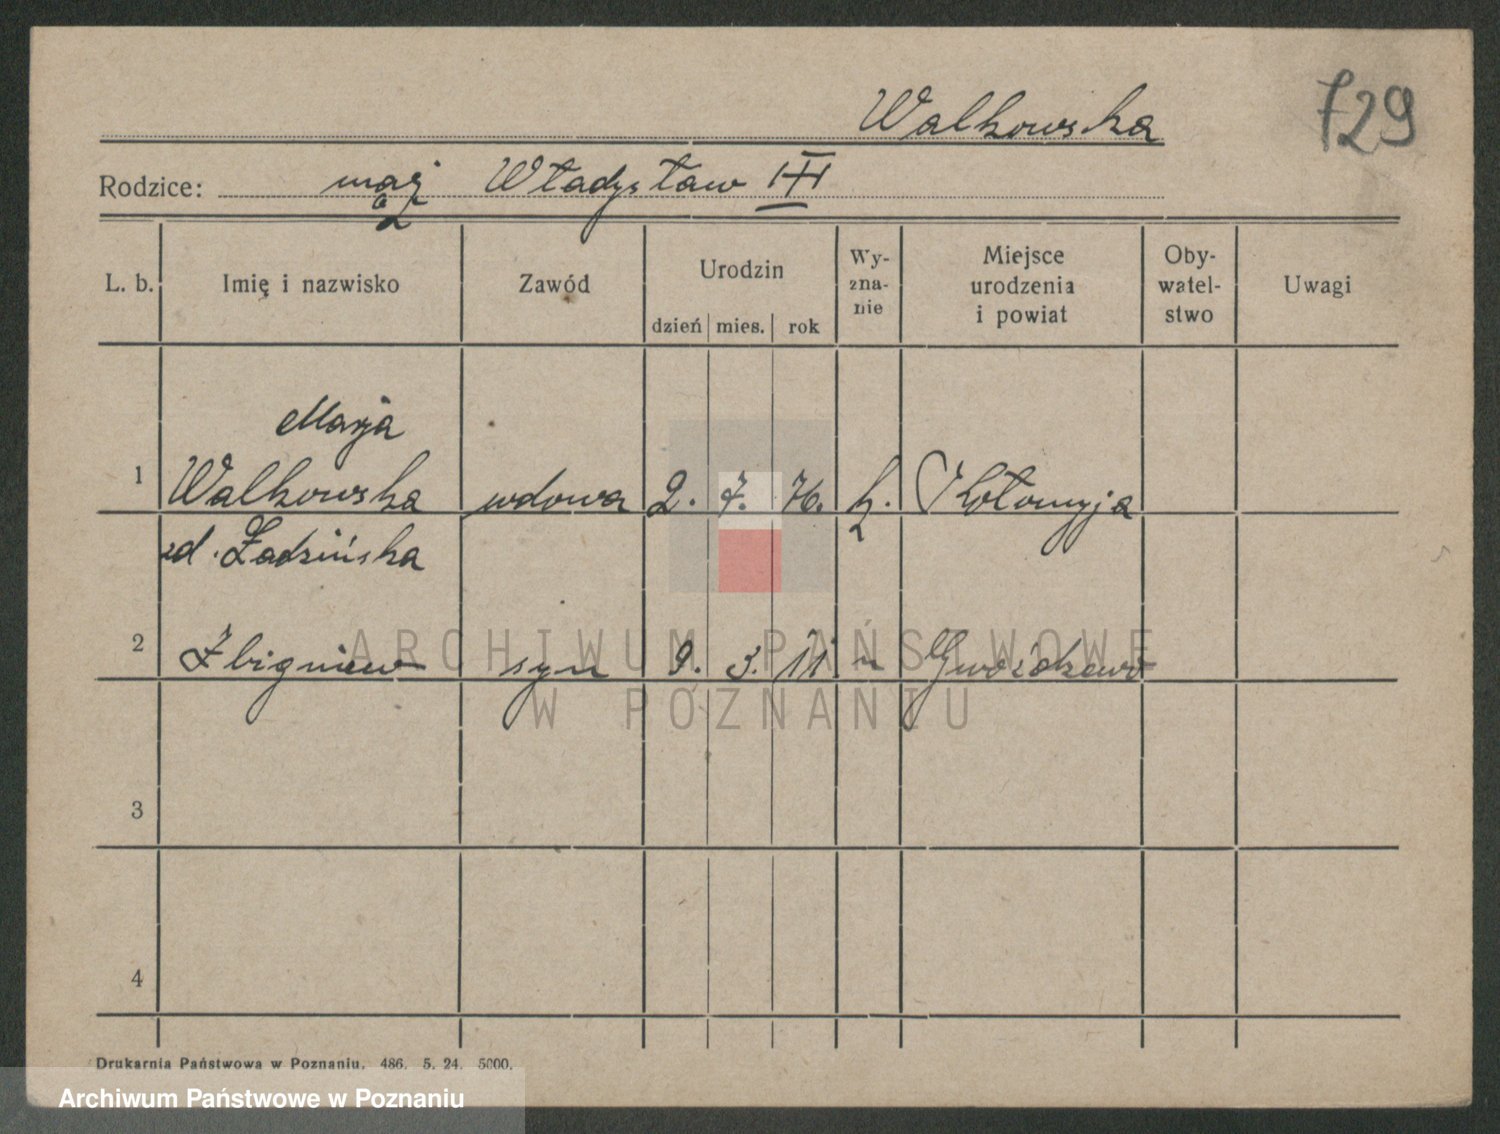 729
Walkowska
Rodzice: mąż Władysław III
L. b. Imię i nazwisko Zawód Urodzin dzień mies. rok Wy-zna-nie Miejsce urodzenia i powiat Oby-watel-stwo Uwagi
Marja
1 Walkowska wdowa 2. 7. 76. k. Kołomyja
zd. Żadzińska
2 Zbigniew syn 9. 3. 11. "
3
4
Drukarnia Państwowa w Poznaniu. 486. 5. 24. 5000.
ARCHIWUM PAŃSTWOWE
W POZNANIU
Archiwum Państwowe w Poznaniu